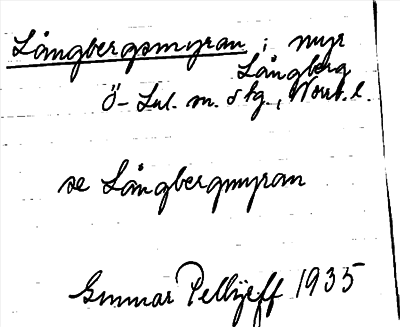 Långbergsmyran i myr
Långberg
Ö-Lul. sn. o tg., Norrb. l.
se Långbergmyran
Gunnar Pellijeff 1935